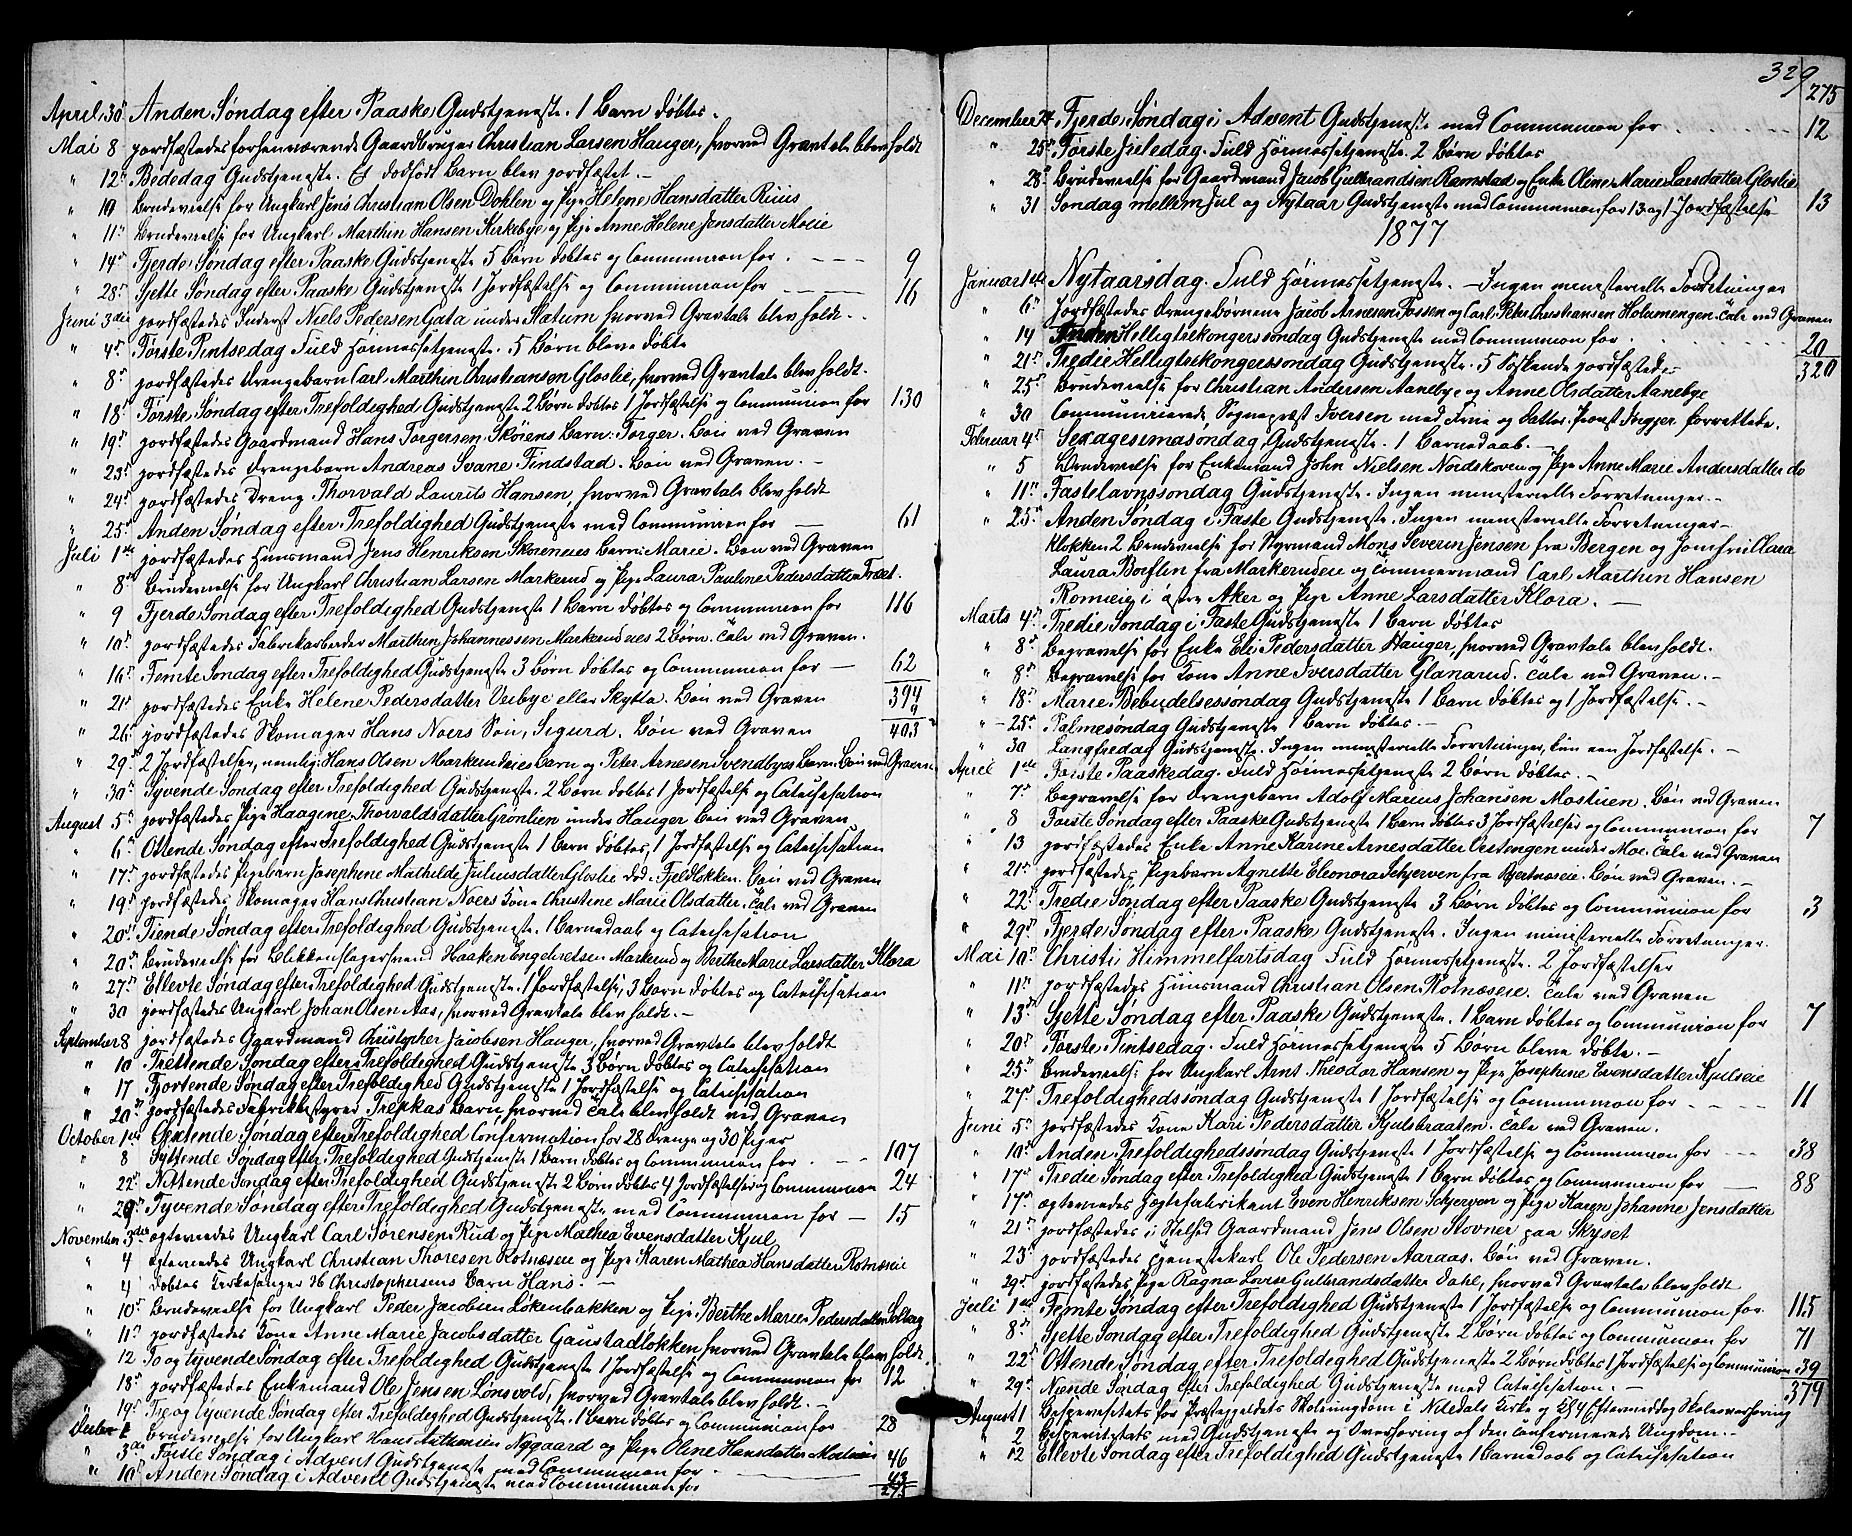 April 30 Anden Søndag efter Paaske Gudstjeneste. 1 Barn døbtes.
Mai 8 jordfæstedes forhenværende Gaardbruger Christian Larsen Hauger, hvorved Gravtale blev holdt
" 12 Bededag Gudstjeneste. Et dødfødt Barn blev jordfæstet.
" 10 Brudevielse for Ungkarl Jens Christian Olsen Døhlen og Pige Helene Hansdatter
" 11 Brudevielse for Ungkarl Marthin Hansen Kirkebye og Pige Anne Helene Jensdatter Moeie
" 14 Fjerde Søndag efter Paaske Gudstjeneste 5 Børn døbtes og Communion for 9
" 28 Sjette Søndag efter Paaske Gudstjeneste 1 Jordfæstelse og Communion for 16
Juni 3die jordfæstedes Inderst Niels Pedersen Gata under Slatum hvorved Gravtale blev holdt.
" 4 Første Pintsedag Fuld Høimessetjeneste. 5 Børn bleve døbte
" 8 jordfæstedes Drengebarn Carl Marthin Christiansen Gloslie, hvorved Gravtale blev holdt.
" 18 Første Søndag efter Trefoldighed Gudstjeneste 2 Børn døbtes 1 Jordfæstelse og Communion for 130
" 19 jordfæstedes Gaardmand Hans Torgersen Skörens Barn: Torger. Bøn ved Graven
" 23 jordfæstedes Drengebarn Andreas Svane Findstad. Bøn ved Graven.
" 24 jordfæstedes Dreng Thorvald Laurits Hansen, hvorved Gravtale blev holdt
" 25 Anden Søndag efter Trefoldighed Gudstjeneste med Communion for 61
Juli 1ste jordfæstedes Huusmand Jens Henriksen Skøreneies Barn: Marie. Bøn ved Graven
" 8 Brudevielse for Ungkarl Christian Larsen Markerud og Pige Laura Pauline Pedersdatter
" 9 Fjerde Søndag efter Trefoldighed Gudstjeneste 1 Barn døbtes og Communion for 116
" 10 jordfæstedes Fabrikarbeider Marthin Johannessen Markerudeies 2 Børn. Tale ved Graven.
" 16 Femte Søndag efter Trefoldighed Gudstjeneste 3 Børn døbtes og Communion for 62
394
" 21 jordfæstedes Enke Helene Pedersdatter Veibye eller Skytta. Bøn ved Graven 9
" 26 jordfæstedes Skomager Hans Noers Søn, Sigurd. Bøn ved Graven 403
" 29 2 Jordfæstelser, nemlig: Hans Olsen Markerudeies Barn og Peter Arnesen Svendbyes Barn. Bøn ved Graven
" 30 Syvende Søndag efter Trefoldighed Gudstjeneste. 2 Børn døbtes 1 Jordfæstelse og Catechisation
August 5 jordfæstedes Pige Haagine Thorvaldsdatter Grønlien under Hauger Bøn ved Graven
" 6 Ottende Søndag efter Trefoldighed Gudstjeneste 1 Barn døbtes, 1 Jordfæstelse og Catechisation
" 17 jordfæstedes Pigebarn Josephine Mathilde Juliusdatter Gloslie død i Fjeldløkken. Bøn ved Graven
" 19 jordfæstedes Skomager Hans Christian Noers Kone Christine Marie Olsdatter. Tale ved Graven
" 20 Tiende Søndag efter Trefoldighed Gudstjeneste. 1 Barnedaab og Catechisation
" 20 Brudevielse for Blikkenslagersvend Haaken Engelretsen Markerud og Berthe Marie Larsdatter Klora
" 27 Ellevte Søndag efter Trefoldighed Gudstjeneste. 1 Jordfæstelse, 3 Børn døbtes og Catechisation
" 30 jordfæstedes Ungkarl Johan Olsen Aas, hvorved Gravtale blev holdt.
September 8 jordfæstedes Gaardmand Christopher Jacobsen Hauger, hvorved Gravtale blev holdt
" 10 Trettende Søndag efter Trefoldighed Gudstjeneste 3 Børn døbtes og Catechisation
" 17 Fjortende Søndag efter Trefoldighed Gudstjeneste 1 Jordfæstelse og Catechisation
" 20 jordfæstedes Fabrikbestyrer Trepkas Barn, hvorved Tale blev holdt ved Graven
October 1ste Sextende Søndag efter Trefoldighed Confirmation for 28 Drenge og 30 Piger
" 8 Syttende Søndag efter Trefoldighed Gudstjeneste 1 Barn døbtes og Communion for 107
" 22 Nittende Søndag efter Trefoldighed Gudstjeneste 2 Børn døbtes 4 Jordfæstelser og Communion 24
" 29 Tyvende Søndag efter Trefoldighed Gudstjeneste med Communion for 15
November 3die ægteviedes Ungkarl Carl Sørensen Rud og Pige Mathea Evensdatter Kjul
" 4 ægteviedes Ungkarl Christian Thoresen Rotnæseie og Pige Karen Mathea Hansdatter Rotnæseie
" 4 døbtes Kirkesanger Christophersens Barn Hans.
" 10 Brudevielse for Ungkarl Peder Jacobsen Løkenbakken og Pige Berthe Marie Pedersdatter
" 11 jordfæstedes Kone Anne Marie Jacobsdatter Gaustadløkken, hvorved Gravtale blev holdt.
" 12 To og tyvende Søndag efter Trefoldighed Gudstjeneste 1 Jordfæstelse og Communion for 12
" 18 jordfæstedes Enkemand Ole Jensen Lønsvold, hvorved Gravtale blev holdt.
" 19 Tre og tyvende Søndag efter Trefoldighed Gudstjeneste. 1 Barn døbtes og Communion for 28
Decbr 1 Brudevielse for Ungkarl Hans Anthonien Nygaard og Pige Oline Hansdatter
" 3die Første Søndag i Advent Gudstjeneste med Communion for 46
" 10 Anden Søndag i Advent Gudstjeneste med Communion for 43
275
329
275
December 24 Fjerde Søndag i Advent Gudstjeneste med Communion for 12
" 25 Første Juledag. Fuld Høimessetjeneste. 2 Børn døbtes
" 28 Brudevielse for Gaardmand Jacob Gulbrandsen Ramstad og Enke Oline Marie Larsdatter Gloslie
" 31 Søndag mellem Jul og Nytaar Gudstjeneste med Communion for 13 og 1 Jordfæstelse 13
1877
Januar 1ste Nytaarsdag. Fuld Høimessetjeneste. Ingen ministerielle Forretninger
" 6 Jordfæstedes Drengebørnene Jacob Arnesen Fossen og Carl Peter Christiansen Holumengen. Tale ved Graven
" 14 Anden Helligtrekongerssøndag Gudstjeneste med Communion for 20
" 21 Tredie Helligtrekongerssøndag Gudstjeneste. 5 Søskende jordfæstedes 320
" 25 Brudevielse for Christian Andersen Aanebye og Anne Olsdatter Aanebye
" 30 Communicerede Sognepræst Iversen med Frue og Datter. Provst forrettede.
Februar 4 Sexagesimasøndag Gudstjeneste. 1 Barnedaab.
" 5 Brudevielse for Enkemand John Nielsen Nordskoven og Pige Anne Marie Andersdatter do
" 11 Fastelavnssøndag Gudstjeneste. Ingen ministerielle Forretninger.
" 25 Anden Søndag i Faste Gudstjeneste. Ingen ministerielle Forretninger
Klokken 2 Brudevielse for Styrmand Mons Severin Jensen fra Bergen og Jomfru Clara
Laura fra Markerudeie og Tømmermand Carl Marthin Hansen
i østre Aker og Pige Anne Larsdatter Klora.
Marts 4 Tredie Søndag i Faste Gudstjeneste 1 Barn døbtes
" 8 Begravelse for Enke Eli Pedersdatter Hauger, hvorved Gravtale blev holdt.
" 8 Begravelse for Kone Anne Iversdatter Glanarud. Tale ved Graven.
" 18 Marie Bebudelsessøndag Gudstjeneste 1 Barn døbtes og 1 Jordfæstelse.
" 25 Palmesøndag Gudstjeneste 1 Barn døbtes.
" 30 Langfredag Gudstjeneste. Ingen ministerielle Forretninger, kun een Jordfæstelse.
April 1ste Første Paaskedag. Fuld Høimessetjeneste 2 Børn døbtes.
" 7 Begravelse for Drengebarn Adolf Marius Johansen Mostuen. Bøn ved Graven
" 8 Første Søndag efter Paaske Gudstjeneste 1 Barn døbtes 3 Jordfæstelser og Communion for 7
" 13 jordfæstedes Enke Anne Karine Arnesdatter Vestengen under Moe. Tale ved Graven
" 21 jordfæstedes Pigebarn Agnette Eleonora Schjerven fra Bjertnæseie. Bøn ved Graven.
" 22 Tredie Søndag efter Paaske Gudstjeneste 3 Børn døbtes og Communion for 3
" 29 Fjerde Søndag efter Paaske Gudstjeneste. Ingen ministerielle Forretninger.
Mai 10 Christi Himmelfartsdag Fuld Høimessetjeneste. 2 Jordfæstelser
" 11 jordfæstedes Huusmand Christian Olsen Rotnæseie. Tale ved Graven
" 13 Sjette Søndag efter Paaske Gudstjeneste. 1 Barn døbtes og Communion for 7
" 20 Første Pintsedag. Fuld Høimessetjeneste 5 Børn bleve døbte.
" 25 Brudevielse for Ungkarl Arnt Theodor Hansen og Pige Josephine Evensdatter Kjulseie
" 27 Trefoldighedssøndag Gudstjeneste 1 Jordfæstelse og Communion for 11
Juni 5 jordfæstedes Kone Kari Pedersdatter Kjulsbraaten. Tale ved Graven.
" 10 Anden Trefoldighedssøndag Gudstjeneste 1 Jordfæstelse og Communion for 38
" 17 Tredie Søndag efter Trefoldighed Gudstjeneste 1 Barn døbtes og Communion for 88
" 17 ægteviedes Hægtefabrikant Even Henriksen Schjerven og Pige Karen Johanne Jensdatter
" 21 jordfæstedes i Stilhed Gaardmand Jens Olsen Stovner paa Skyset
" 23 jordfæstedes Tjenestekarl Ole Pedersen Aaraas. Bøn ved Graven.
" 29 jordfæstedes Pige Ragna Lovise Gulbrandsdatter Dahl, hvorved Gravtale blev holdt
Juli 1ste Femte Søndag efter Trefoldighed Gudstjeneste 1 Jordfæstelse og Communion for 115
" 8 Sjette Søndag efter Trefoldighed Gudstjeneste 2 Børn døbtes og Communion for 71
" 22 Ottende Søndag efter Trefoldighed Gudstjeneste 2 Børn døbtes 1 Jordfæstelse og Communion 39
" 29 Niende Søndag efter Trefoldighed Gudstjeneste med Catechisation. 379
August 1 Bispevisitats for Præstegjeldets Skoleungdom i Nitedals Kirke og Eftermiddag Skoleoverhøring
" 2 Bispevisitats med Gudstjeneste og Overhøring af den confirmerede Ungdom.
" 12 Ellevte Søndag efter Trefoldighed Gudstjeneste 1 Barnedaab og Catechisation